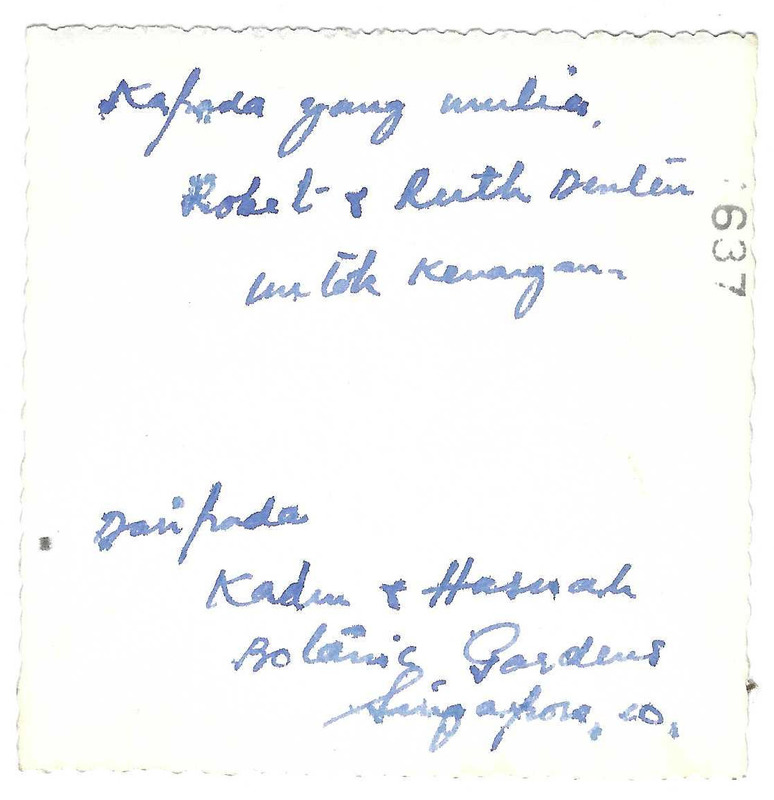 Kapada yang mulia,
Robet & Ruth Denten
untok Kenangan-
637
Daripada
Kadm & Hasnah
Botanic Gardens
Singapore, 10.